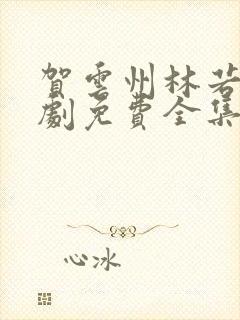 賀雲州林若
劇免費全集
心冰